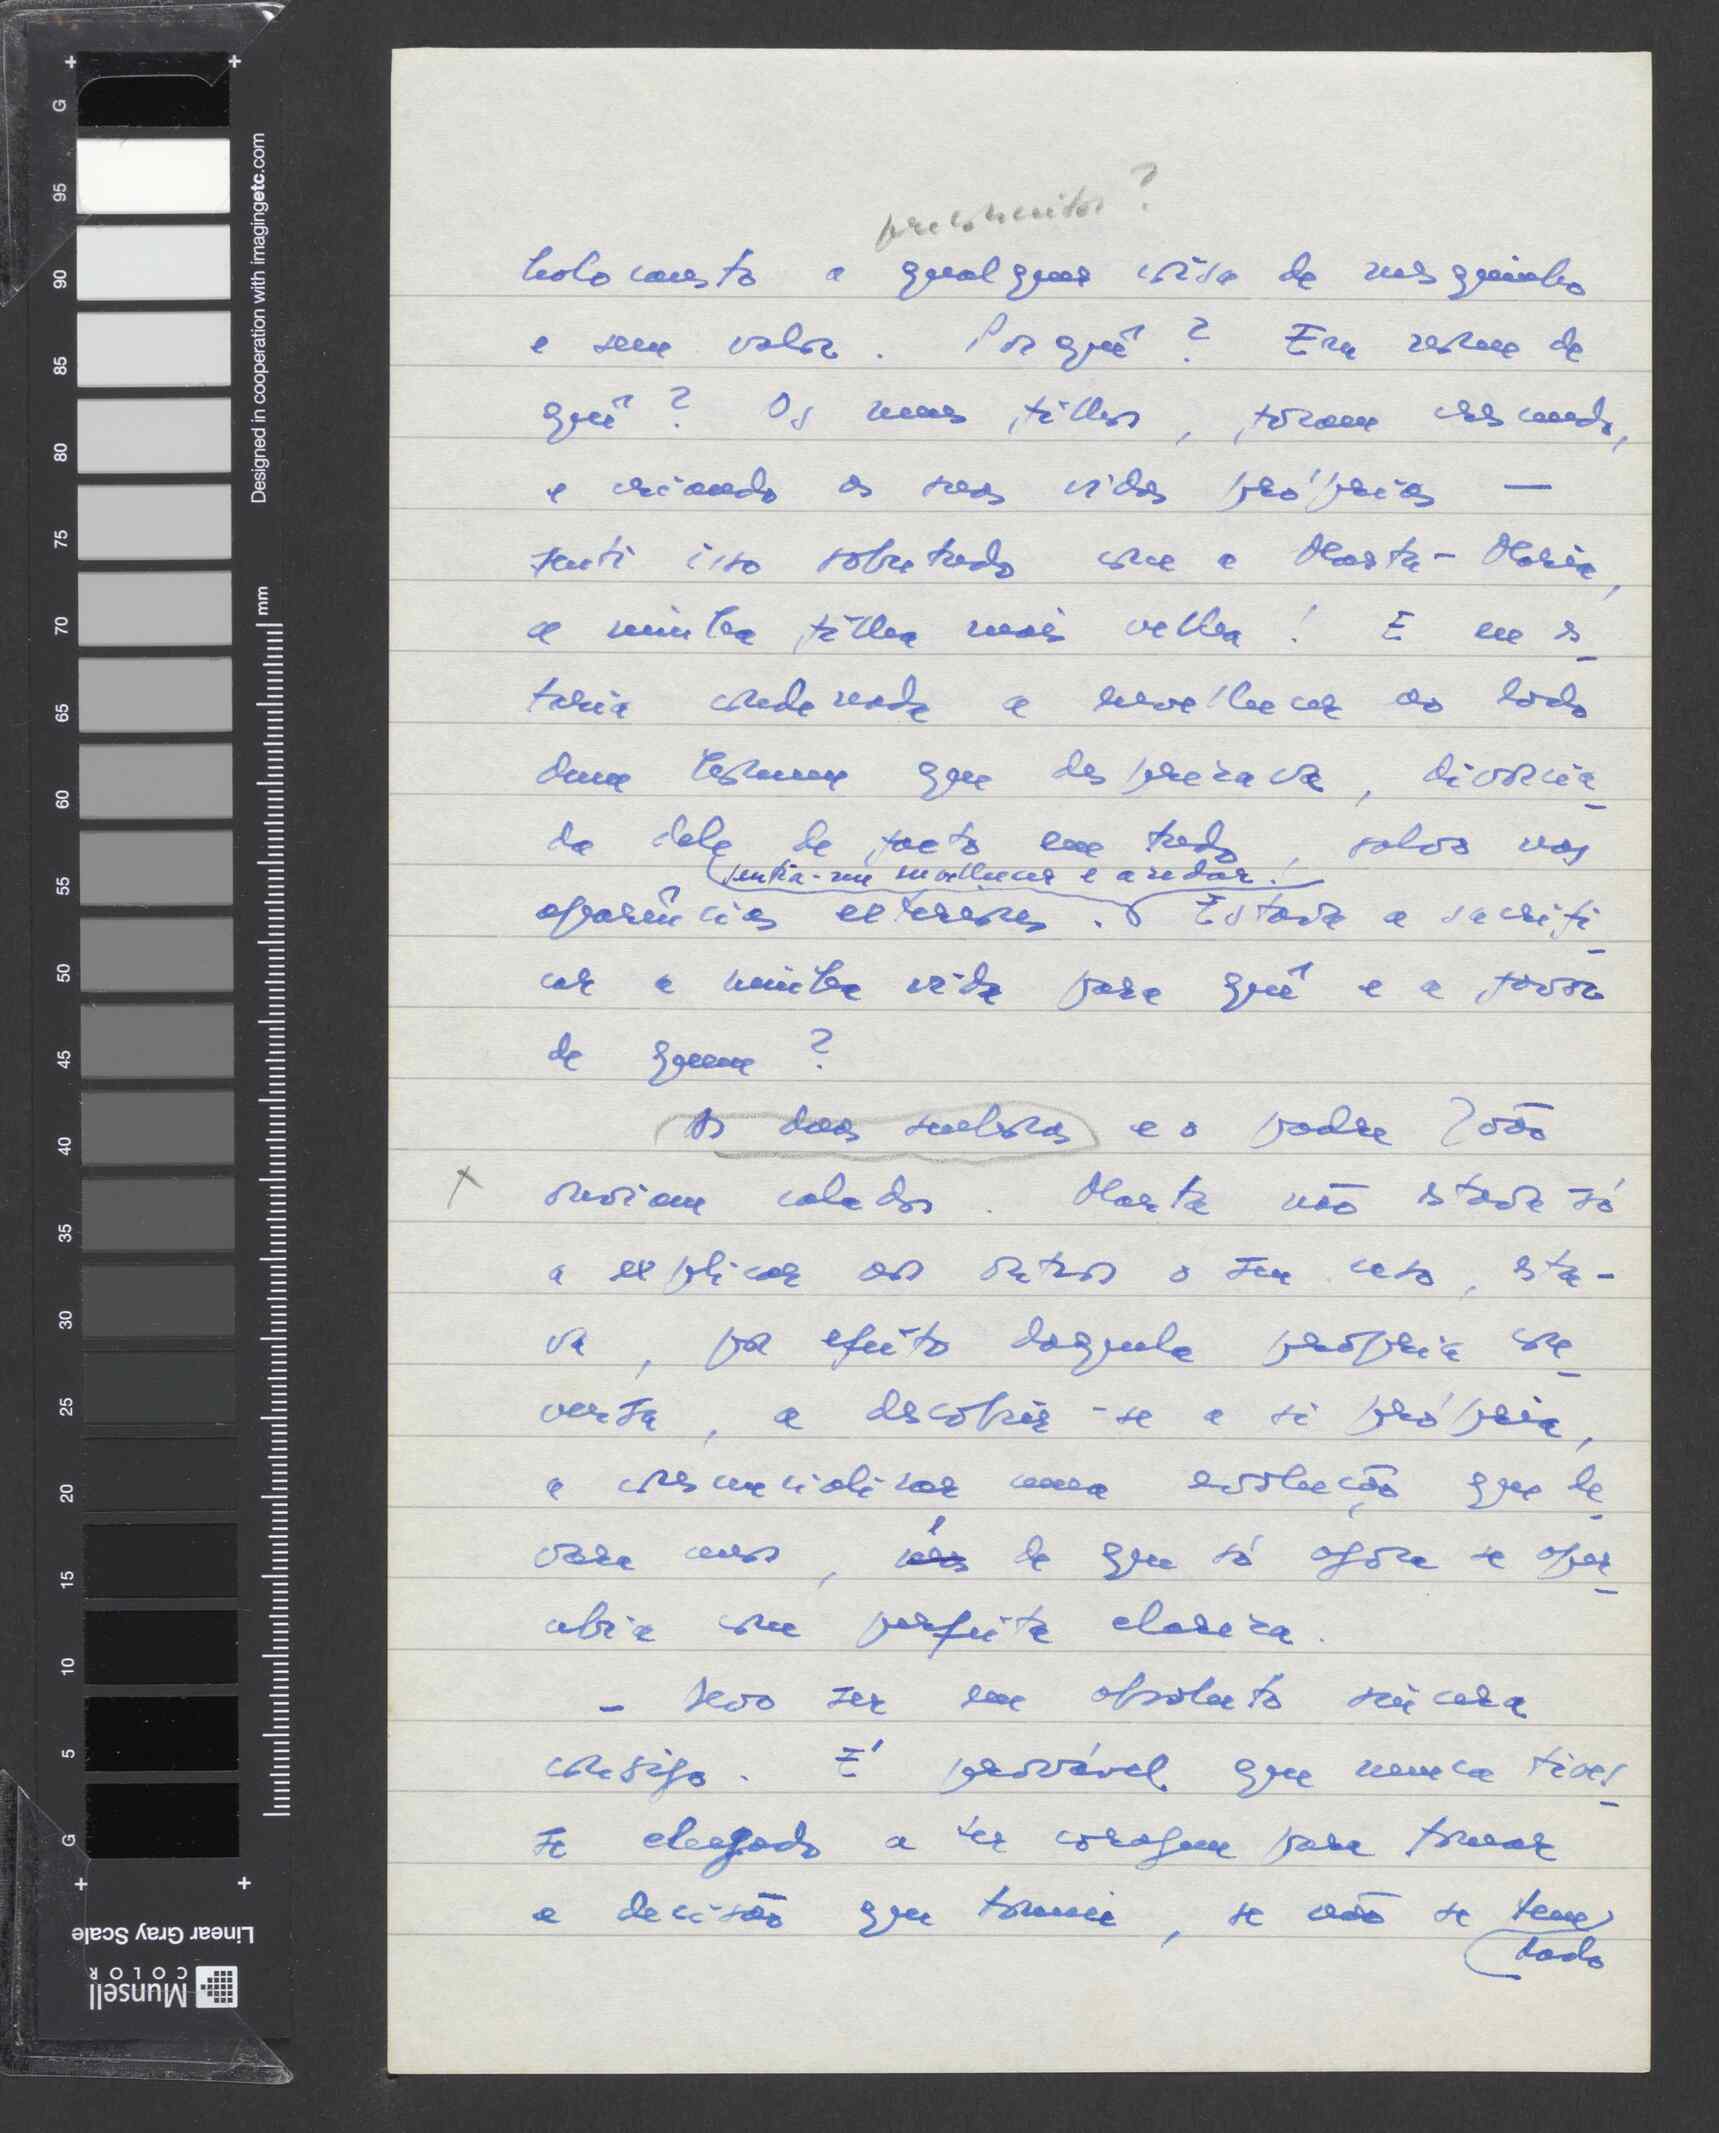 preconceitos?
holocausto a qualquer coisa de mesquinho
e sem valor. Por quê? Em nome de
quê? Os meus filhos, foram casando,
e criando as suas vidas próprias —
senti isso sobretudo com a Marta-Maria,
a minha filha mais velha! E eu es-
taria condenada a envelhecer ao lado
dum homem que desprezava, divorcia-
da dele de facto em tudo, salvo nas
sentia-me envelhecer e azedar!
aparências exteriores. Estava a sacrifi-
car a minha vida para quê e a favor
de quem?
As duas senhoras e o padre João
ouviam calados. Marta não estava só
a explicar aos outros o seu caso, esta-
va, por efeito daquela própria con-
versa, a descobrir-se a si própria,
a consciencializar uma evolução que le-
vara anos, mas de que só agora se aper-
cebia com perfeita clareza.
- Devo ser em absoluto sincera
consigo. É provável que nunca tives-
se chegado a ter coragem para tomar
a decisão que tomei, se não se tem
dado